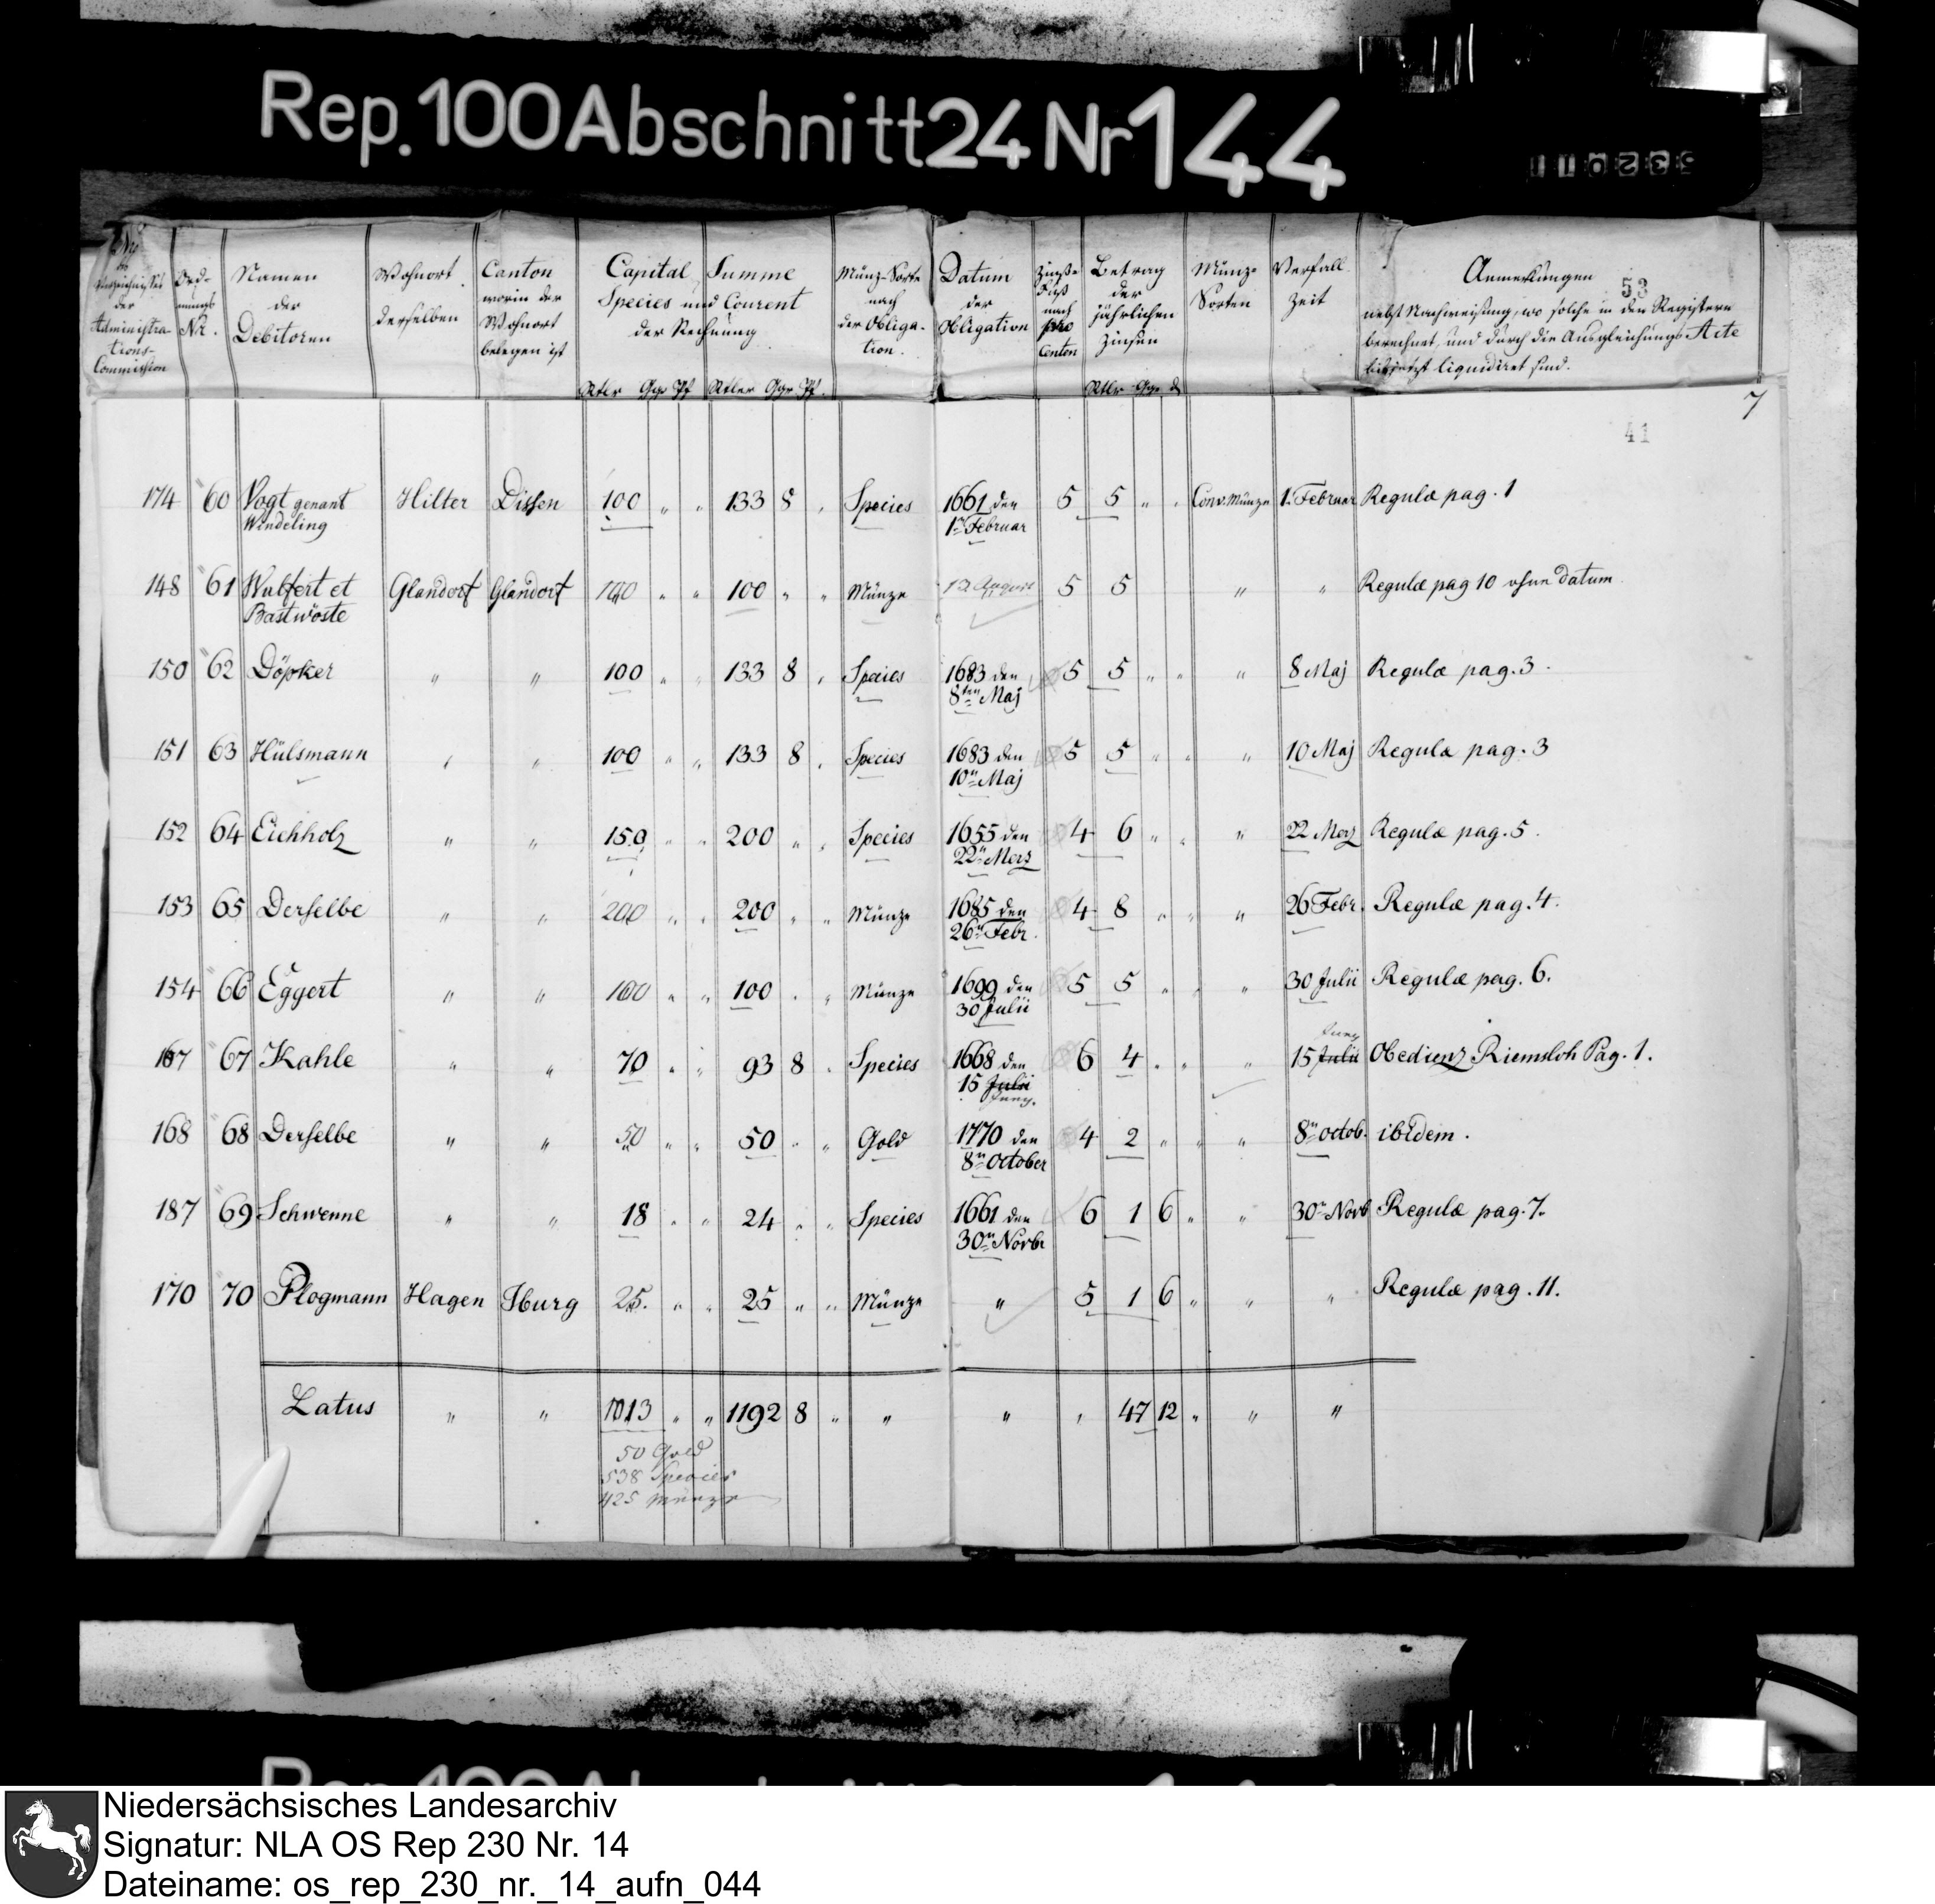 Rep. 100 Abschnitt 24 Nr 144
53
No des Verzeichnißes der Administrations-Commission
Ordnungs Nr.
Namen der Debitoren
Wohnort derselben
Canton worin der Wohnort belegen ist
Capital Summe Species und Courent der Rechnung
Rtlr Ggr Pf Rtler Ggr Pf.
Münz-Sorte nach der Obligation.
Datum der Obligation
Zinß-Fuß nach pro Centen
Betrag der jährlichen Zinsen
Rtlr Ggr d
Münz-Sorten
Verfall Zeit
Anmerkungen
nebst Nachweisung, wo solche in den Registern
berechnet, und durch die Ausgleichungs Acte
bis jetzt liquidiret sind.
7
41
174 60 Vogt genant Hilter Dissen 100 " " 133 8 " Species 1661 den 5 5 " " Conv. Münze 1. Februar Regulæ pag. 1
Wendeling 1ten Februar
148 61 Wulfert et Glandorf Glandorf 100 " " 100 " " Münze 12 August 5 5 " " Regulæ pag 10 ohne Datum
Bastwöste
150 62 Döpker " " 100 " " 133 8 " Species 1683 den 5 5 " " " 8 Maj Regulæ pag. 3.
8ten Maj
151 63 Hülsmann " " 100 " " 133 8 " Species 1683 den 5 5 " " " 10 Maj Regulæ pag. 3
10n Maj
152 64 Eichholz " " 150 " " 200 " " Species 1655 den 4 6 " " " 22 Merz Regulæ pag. 5.
22n Merz
153 65 Derselbe " " 200 " " 200 " " Münze 1685 den 4 8 " " " 26 Febr. Regulæ pag. 4.
26n Febr.
154 66 Eggert " " 100 " " 100 " " Münze 1699 den 5 5 " " " 30 Julii Regulæ pag. 6.
30 Julii
Juny
167 67 Kahle " " 70 " " 93 8 " Species 1668 den 6 4 " " " 15 Julii Obedienz Riemsloh Pag. 1.
15 Julii
Juny.
168 68 Derselbe " " 50 " " 50 " " Gold 1770 den 4 2 " " " 8n octob. ibidem.
8n October
187 69 Schwenne " " 18 " " 24 " " Species 1661 den 6 1 6 " " 30n Novb Regulæ pag. 7.
30n Novbr
170 70 Plogmann Hagen Iburg 25. " " 25 " " Münze " 5 1 6 " " " Regulæ pag. 11.
Latus " " 1013 " " 1192 8 " " " " 47 12 " " "
50 Gold
538 Species
425 Münze
Niedersächsisches Landesarchiv
Signatur: NLA OS Rep 230 Nr. 14
Dateiname: os_rep_230_nr._14_aufn_044